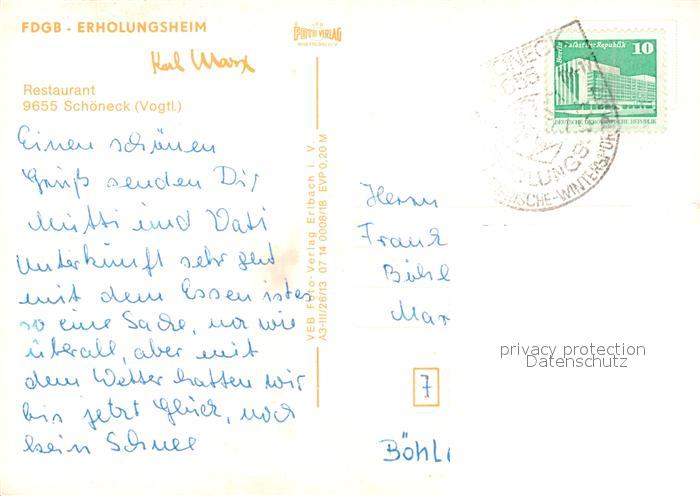 FDGB - ERHOLUNGSHEIM
Karl Marx
Restaurant
9655 Schöneck (Vogtl.)
Einen schönen
Gruß senden Dir
Mutti und Vati
Unterkunft sehr gut
mit dem Essen ist es
so eine Sache, nur wie
überall, aber mit
dem Wetter hatten wir
bis jetzt Glück, noch
kein Schnee
VEB
FOTO VERLAG
VEB Foto-Verlag Erlbach i. V.
A3-III/26/13 07 14 0008/18 EVP 0,20 M
Berlin - Palast der Republik
10
DEUTSCHE DEMOKRATISCHE REPUBLIK
LUNGS
ISCHE-WINTERSPORT
Herrn
Frank
Böhl
Mar
7
Böhl
privacy protection
Datenschutz